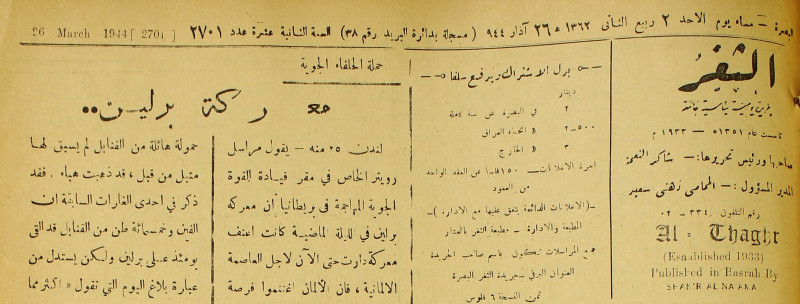 البصرة — مساء يوم الاحد ٢ ربيع الثاني ١٣٦٣ ه ٢٦ آذار ٩٤٤ ( مسجلة بدائرة البريد رقم ٣٨) السنة الثانية عشرة عدد ٢٧٠١
26 March 1944 [ 2701 ]
الثغر
جريدة يومية سياسية جامعة
تأسست عام ١٣٥١ه — ١٩٣٣ م
صاحبها ورئيس تحريرها: — شاكر النعمة
المدير المسؤول: — المحامي زهني سعيد
رقم التلفون
Al - Thaghr
(Established 1933)
Published in Basrah By
SHAKIR AL NAAMA
بدل الاشتراك ويدفع سلفا
دينار
٢ في البصرة عن سنة كاملة
٢-٥٠٠ « انحاء العراق
٣ « الخارج
اجرة الاعلانات — ١٥٠ فلسا عن العقد الواحد
من العمود
—(الاعلانات الدائمة يتفق عليها مع الادارة)—
المطبعة والادارة — مطبعة الثغر بالعشار
جميع المراسلات تكون باسم صاحب الجريدة
العنوان البرقي — جريدة الثغر البصرة
ثمن النسخة ٦ فلوس
حملة الحلفاء الجوية
معركة برلين..
لندن ٢٥ منه — يقول مراسل
رويتر الخاص في مقر قيادة القوة
الجوية المهاجمة في بريطانيا أن معركه
برلين في لليلة الماضية كانت اعنف
معركة دارت حتى الآن لاجل العاصمة
الالمانية ، فان الألمان اغتنموا فرصة
حمولة هائلة من القنابل لم يسبق لها
مثيل من قبل ، قد ذهبت هباء . فقد
ذكر في احدى الغارات السابقة ان
الفين وخمسمائة طن من القنابل قد القى
يومئذ على برلين ولكن يستدل من
عبارة بلاغ اليوم التي تقول « اكثر مما